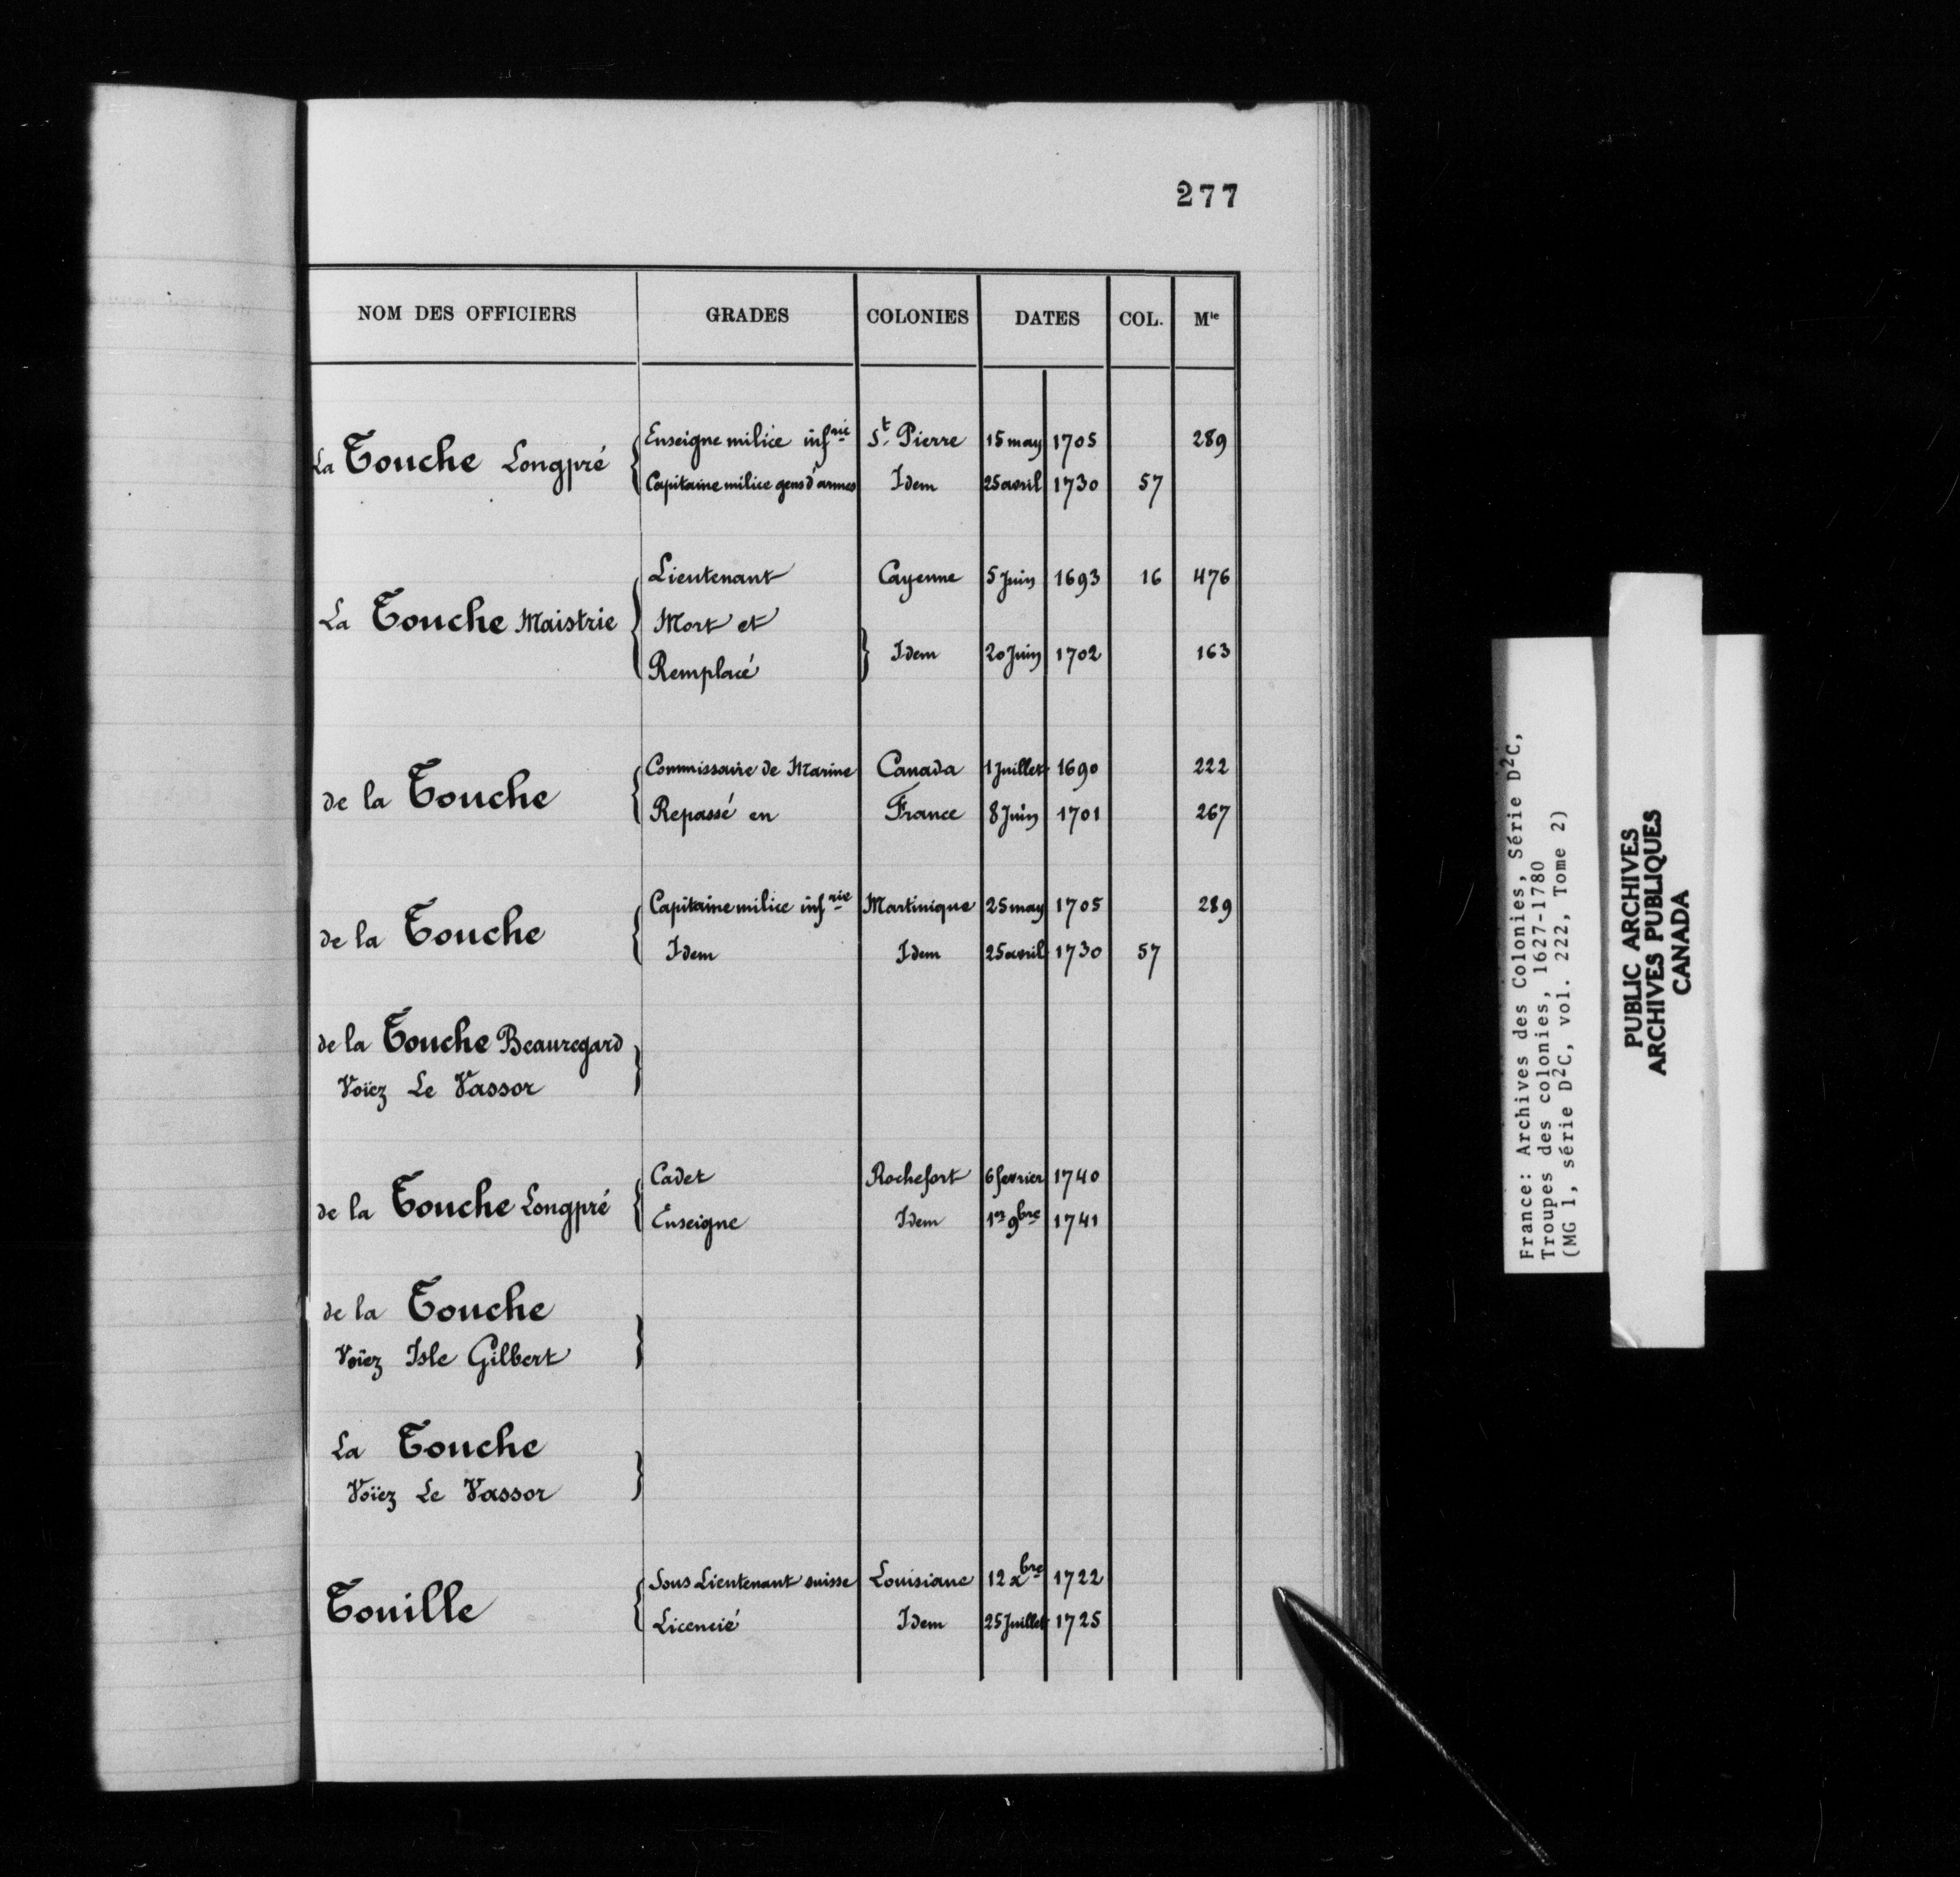 277
NOM DES OFFICIERS GRADES COLONIES DATES COL. Mie
La Touche Longpré Enseigne milice infrie St. Pierre 15 may 1705 289
Capitaine milice gens d'armes Idem 25 avril 1730 57
La Touche Maistrie Lieutenant Cayenne 5 Juin 1693 16 476
Mort et
Remplacé Idem 20 Juin 1702 163
de la Touche Commissaire de Marine Canada 1 Juillet 1690 222
Repassé en France 8 Juin 1701 267
de la Touche Capitaine milice infrie Martinique 25 may 1705 289
Idem Idem 25 avril 1730 57
de la Touche Beauregard
Voïez Le Vassor
de la Touche Longpré Cadet Rochefort 6 fevrier 1740
Enseigne Idem 1er 9bre 1741
de la Touche
Voïez Isle Gilbert
La Touche
Voïez Le Vassor
Touille Sous Lieutenant suisse Louisiane 12 xbre 1722
Licencié Idem 25 Juillet 1725
France: Archives des Colonies, Série D2C,
Troupes des colonies, 1627-1780
(MG 1, série D2C, vol. 222, Tome 2)
PUBLIC ARCHIVES
ARCHIVES PUBLIQUES
CANADA